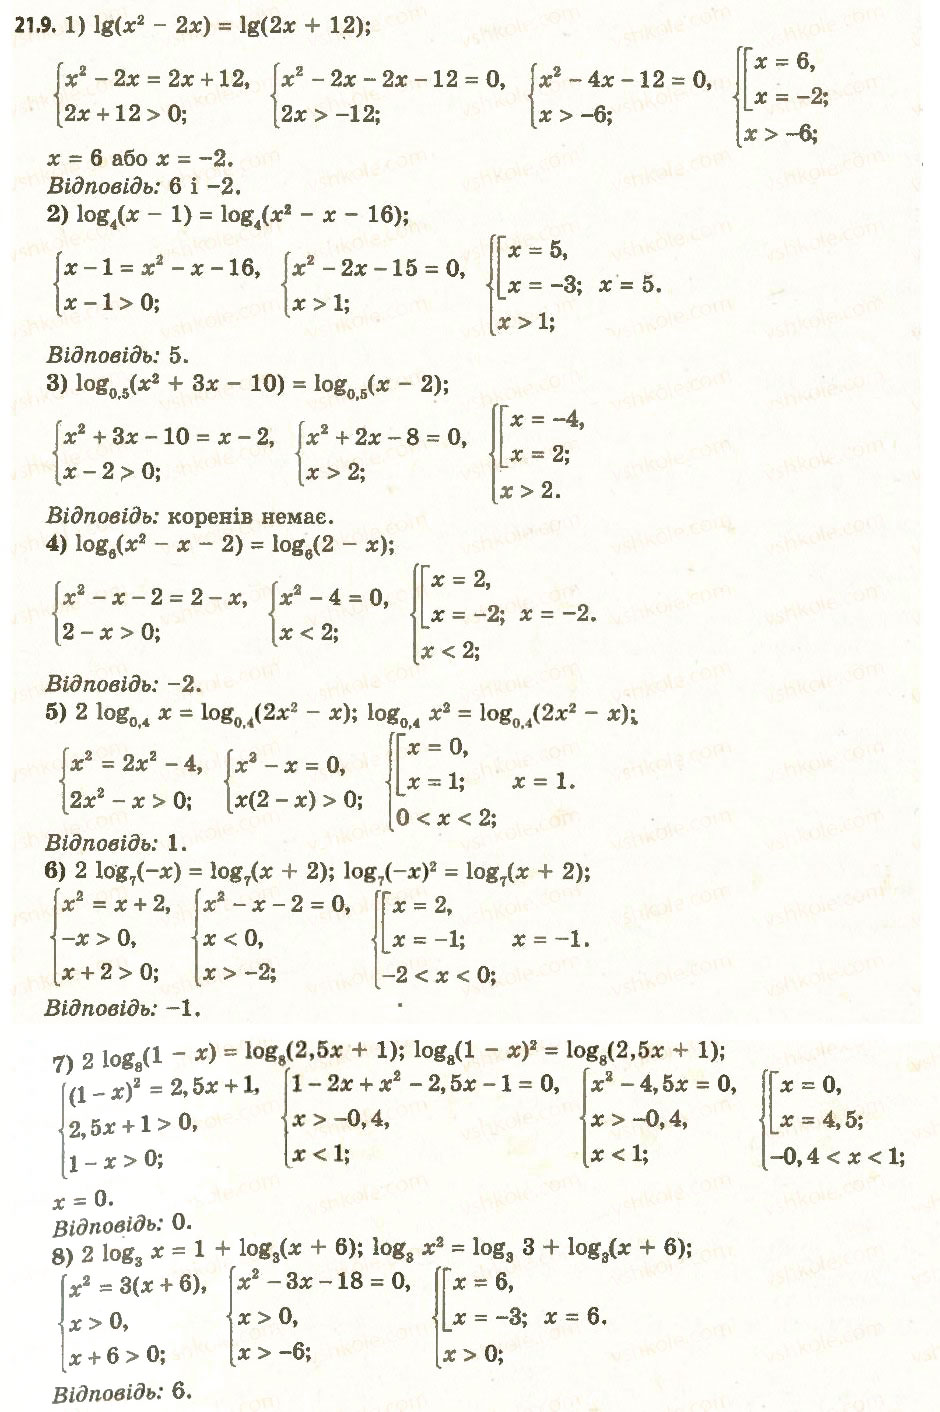 21.9. 1) lg(x² − 2x) = lg(2x + 12);
{x² − 2x = 2x + 12, {x² − 2x − 2x − 12 = 0, {x² − 4x − 12 = 0, {[x = 6,
2x + 12 > 0; 2x > −12; x > −6; x = −2;
x > −6;
x = 6 або x = −2.
Відповідь: 6 і −2.
2) log₄(x − 1) = log₄(x² − x − 16);
{x − 1 = x² − x − 16, {x² − 2x − 15 = 0, {[x = 5,
x − 1 > 0; x > 1; x = −3; x = 5.
x > 1;
Відповідь: 5.
3) log₀,₅(x² + 3x − 10) = log₀,₅(x − 2);
{x² + 3x − 10 = x − 2, {x² + 2x − 8 = 0, {[x = −4,
x − 2 > 0; x > 2; x = 2;
x > 2.
Відповідь: коренів немає.
4) log₆(x² − x − 2) = log₆(2 − x);
{x² − x − 2 = 2 − x, {x² − 4 = 0, {[x = 2,
2 − x > 0; x < 2; x = −2; x = −2.
x < 2;
Відповідь: −2.
5) 2 log₀,₄ x = log₀,₄(2x² − x); log₀,₄ x² = log₀,₄(2x² − x);
{x² = 2x² − 4, {x² − x = 0, {[x = 0,
2x² − x > 0; x(2 − x) > 0; x = 1; x = 1.
0 < x < 2;
Відповідь: 1.
6) 2 log₇(−x) = log₇(x + 2); log₇(−x)² = log₇(x + 2);
{x² = x + 2, {x² − x − 2 = 0, {[x = 2,
−x > 0, x < 0, x = −1; x = −1.
x + 2 > 0; x > −2; −2 < x < 0;
Відповідь: −1.
7) 2 log₈(1 − x) = log₈(2,5x + 1); log₈(1 − x)² = log₈(2,5x + 1);
{(1 − x)² = 2,5x + 1, {1 − 2x + x² − 2,5x − 1 = 0, {x² − 4,5x = 0, {[x = 0,
2,5x + 1 > 0, x > −0,4, x > −0,4, x = 4,5;
1 − x > 0; x < 1; x < 1; −0,4 < x < 1;
x = 0.
Відповідь: 0.
8) 2 log₃ x = 1 + log₃(x + 6); log₃ x² = log₃ 3 + log₃(x + 6);
{x² = 3(x + 6), {x² − 3x − 18 = 0, {[x = 6,
x > 0, x > 0, x = −3; x = 6.
x + 6 > 0; x > −6; x > 0;
Відповідь: 6.